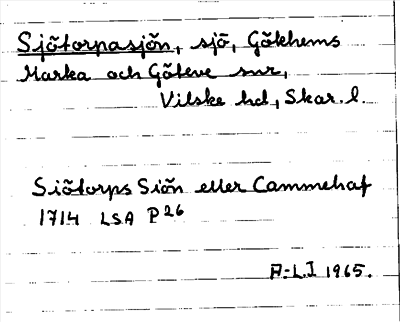 Sjötorpasjön, sjö, Gökhems
Marka och Göteve snr,
Vilske hd, Skar. l.
Siötorps Siön eller Cammehaf
1714 LSA P26
A-L.I 1965.